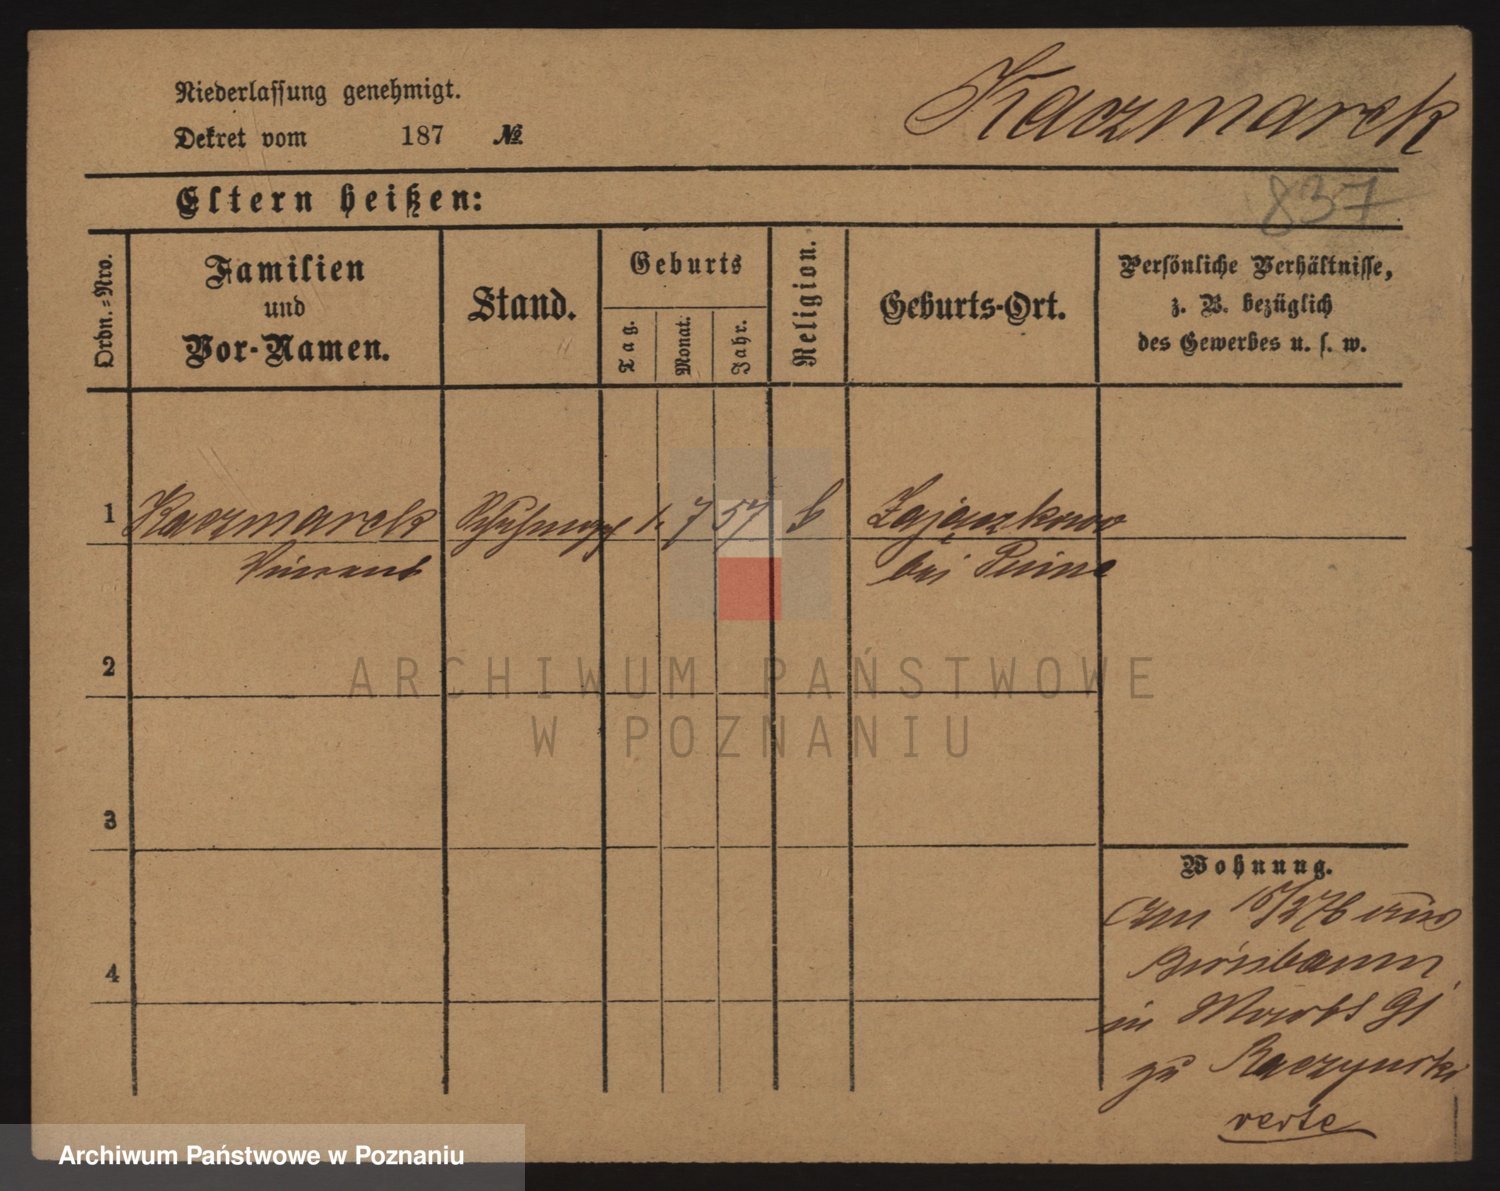 Niederlassung genehmigt.
Kaczmarek
Dekret vom 187 №
Eltern heißen:
837
Ordn.=Nro.
Familien
und
Vor-Namen.
Stand.
Geburts
Tag.
Monat.
Jahr.
Religion.
Geburts-Ort.
Persönliche Verhältnisse,
z. B. bezüglich
des Gewerbes u. s. w.
1 Kaczmarek 1. 7 57 Zajączkowo
Vincent bei Pinne
2
ARCHIWUM PAŃSTWOWE
W POZNANIU
3
Wohnung.
15/2 76 aus
Birnbaum
4
in
zu Raczynski
verte
Archiwum Państwowe w Poznaniu